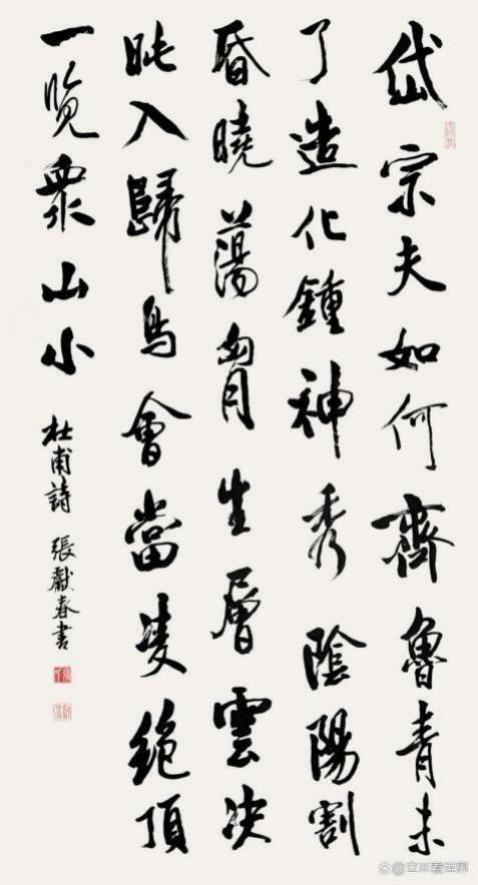 岱宗夫如何齊魯青未
了造化鍾神秀陰陽割
昏曉蕩胷生層雲决
眦入歸鳥會當凌絕頂
一覽衆山小
杜甫詩 張獻春書